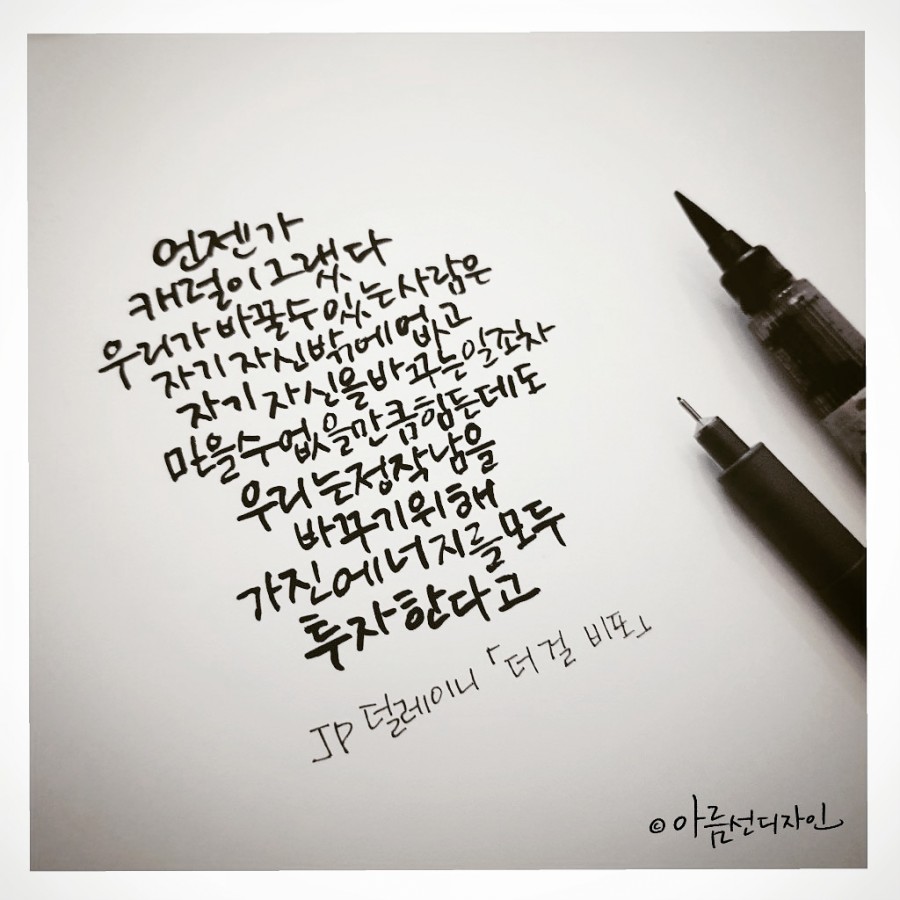 언젠가
캐럴이 그랬다
우리가 바꿀수 있는 사람은
자기 자신밖에 없고
자기 자신을 바꾸는 일조차
믿을수 없을만큼 힘든데도
우리는 정작 남을
바꾸기 위해
가진 에너지를 모두
투자한다고
JP 덜레이니 「더 걸 비포」
© 아름선디자인